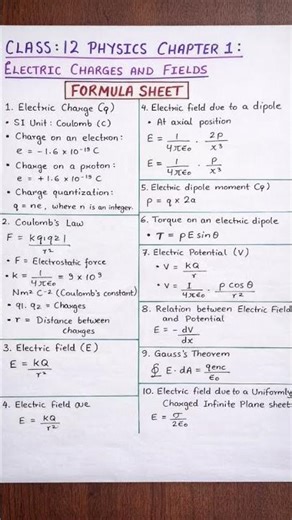 CLASS:12 PHYSICS CHAPTER 1:
ELECTRIC CHARGES AND FIELDS
FORMULA SHEET
1. Electric Charge (q)
• SI Unit: Coulomb (C)
• Charge on an electron:
e = -1.6 × 10⁻¹⁹ C
• Charge on a proton:
e = +1.6 × 10⁻¹⁹ C
• Charge quantization:
q = ne, where n is an integer
2. Coulomb's Law
F = kq₁q₂1 / r²
• F = Electrostatic force
• k = 1/4πε₀ = 9 × 10⁹
Nm² C⁻² (Coulomb's constant)
• q₁. q₂ = Charges
• r = Distance between
charges
3. Electric field (E)
E = kQ / r²
4. Electric field due
E = kQ / r²
4. Electric field due to a dipole
• At axial position
E = 1/4πε₀ . 2p/x³
E = 1/4πε₀ . p/x³
5. Electric dipole moment (q)
p = q × 2a
6. Torque on an electric dipole
• τ = pE sinθ
7. Electric Potential (V)
• V = kQ / r
• V = 1/4πε₀ . p cos θ / r²
8. Relation between Electric Field
and Potential
E = - dV/dx
9. Gauss's Theorem
∮ E · dA = qenc / ε₀
10. Electric field due to a Uniformly
Charged Infinite Plane sheet
E = σ / 2ε₀